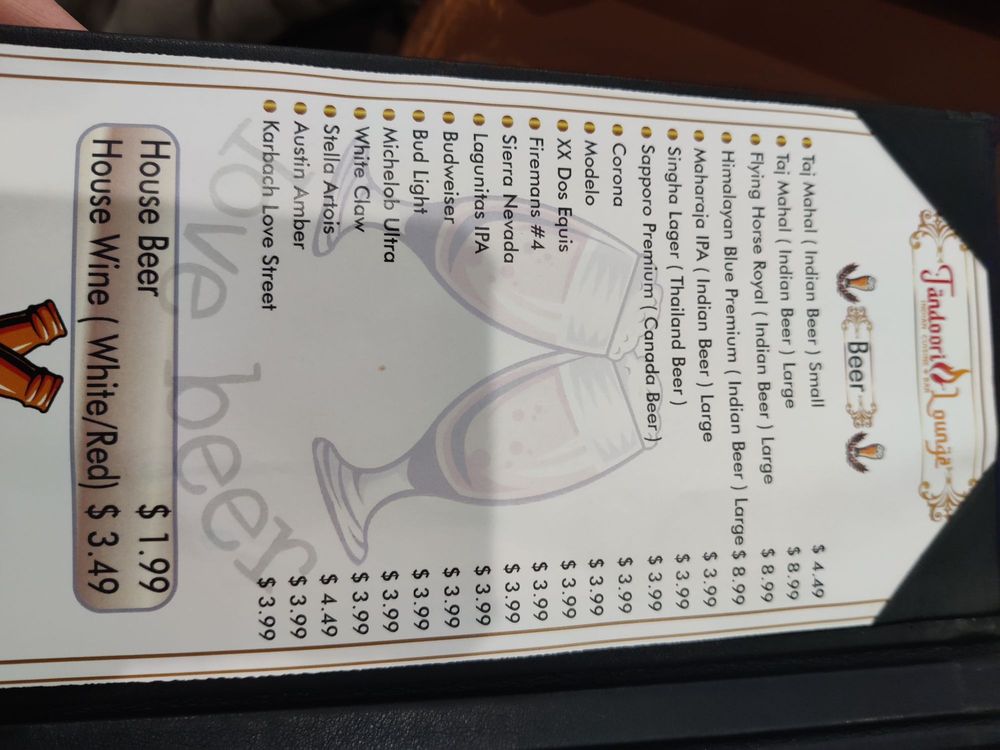 Tandoori Lounge
INDIAN CUISINE & BAR
Beer
Taj Mahal ( Indian Beer ) Small $ 4.49
Taj Mahal ( Indian Beer ) Large $ 8.99
Flying Horse Royal ( Indian Beer ) Large $ 8.99
Himalayan Blue Premium ( Indian Beer ) Large $ 8.99
Maharaja IPA ( Indian Beer ) Large $ 3.99
Singha Lager ( Thailand Beer ) $ 3.99
Sapporo Premium ( Canada Beer ) $ 3.99
Corona $ 3.99
Modelo $ 3.99
XX Dos Equis $ 3.99
Firemans #4 $ 3.99
Sierra Nevada $ 3.99
Lagunitas IPA $ 3.99
Budweiser $ 3.99
Bud Light $ 3.99
Michelob Ultra $ 3.99
White Claw $ 3.99
Stella Artois $ 4.49
Austin Amber $ 3.99
Karbach Love Street $ 3.99
love beer
House Beer $ 1.99
House Wine ( White/Red) $ 3.49